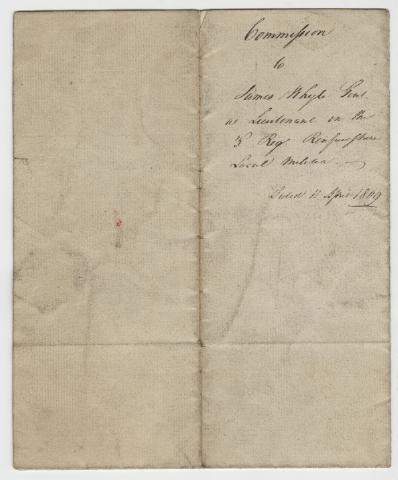 Commission
to
James Whyte Gent
as Lieutenant in the
3d Regt Renfrewshire
Local Militia
Dated 11 April 1809